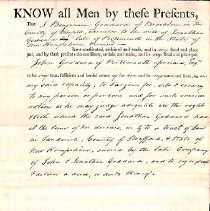 KNOW all Men by these Presents,
THAT I Benjamin Goddard of Brookline in the
County of Norfolk, Executor to the will of Jonathan
Goddard late of Portsmouth in the State of
New Hampshire
have constituted, ordained and made, and in my stead and place
put, and by these presents do constitute, ordain and make, and in my stead and place put
John Goddard of Portsmouth
to be my true, sufficient and lawful attorney for me and in my name and stead,
said capacity, to bargain for, sell & convey
to any person or persons and for such consideration
as he may judge adequate the right
title which the said Jonathan Goddard had
at the time of his decease, in & to a lot of land
in Sandwich, County of Strafford, & State of
New Hampshire, owned by the late Company
of John & Jonathan Goddard, and to
execute a deed, or deeds thereof.